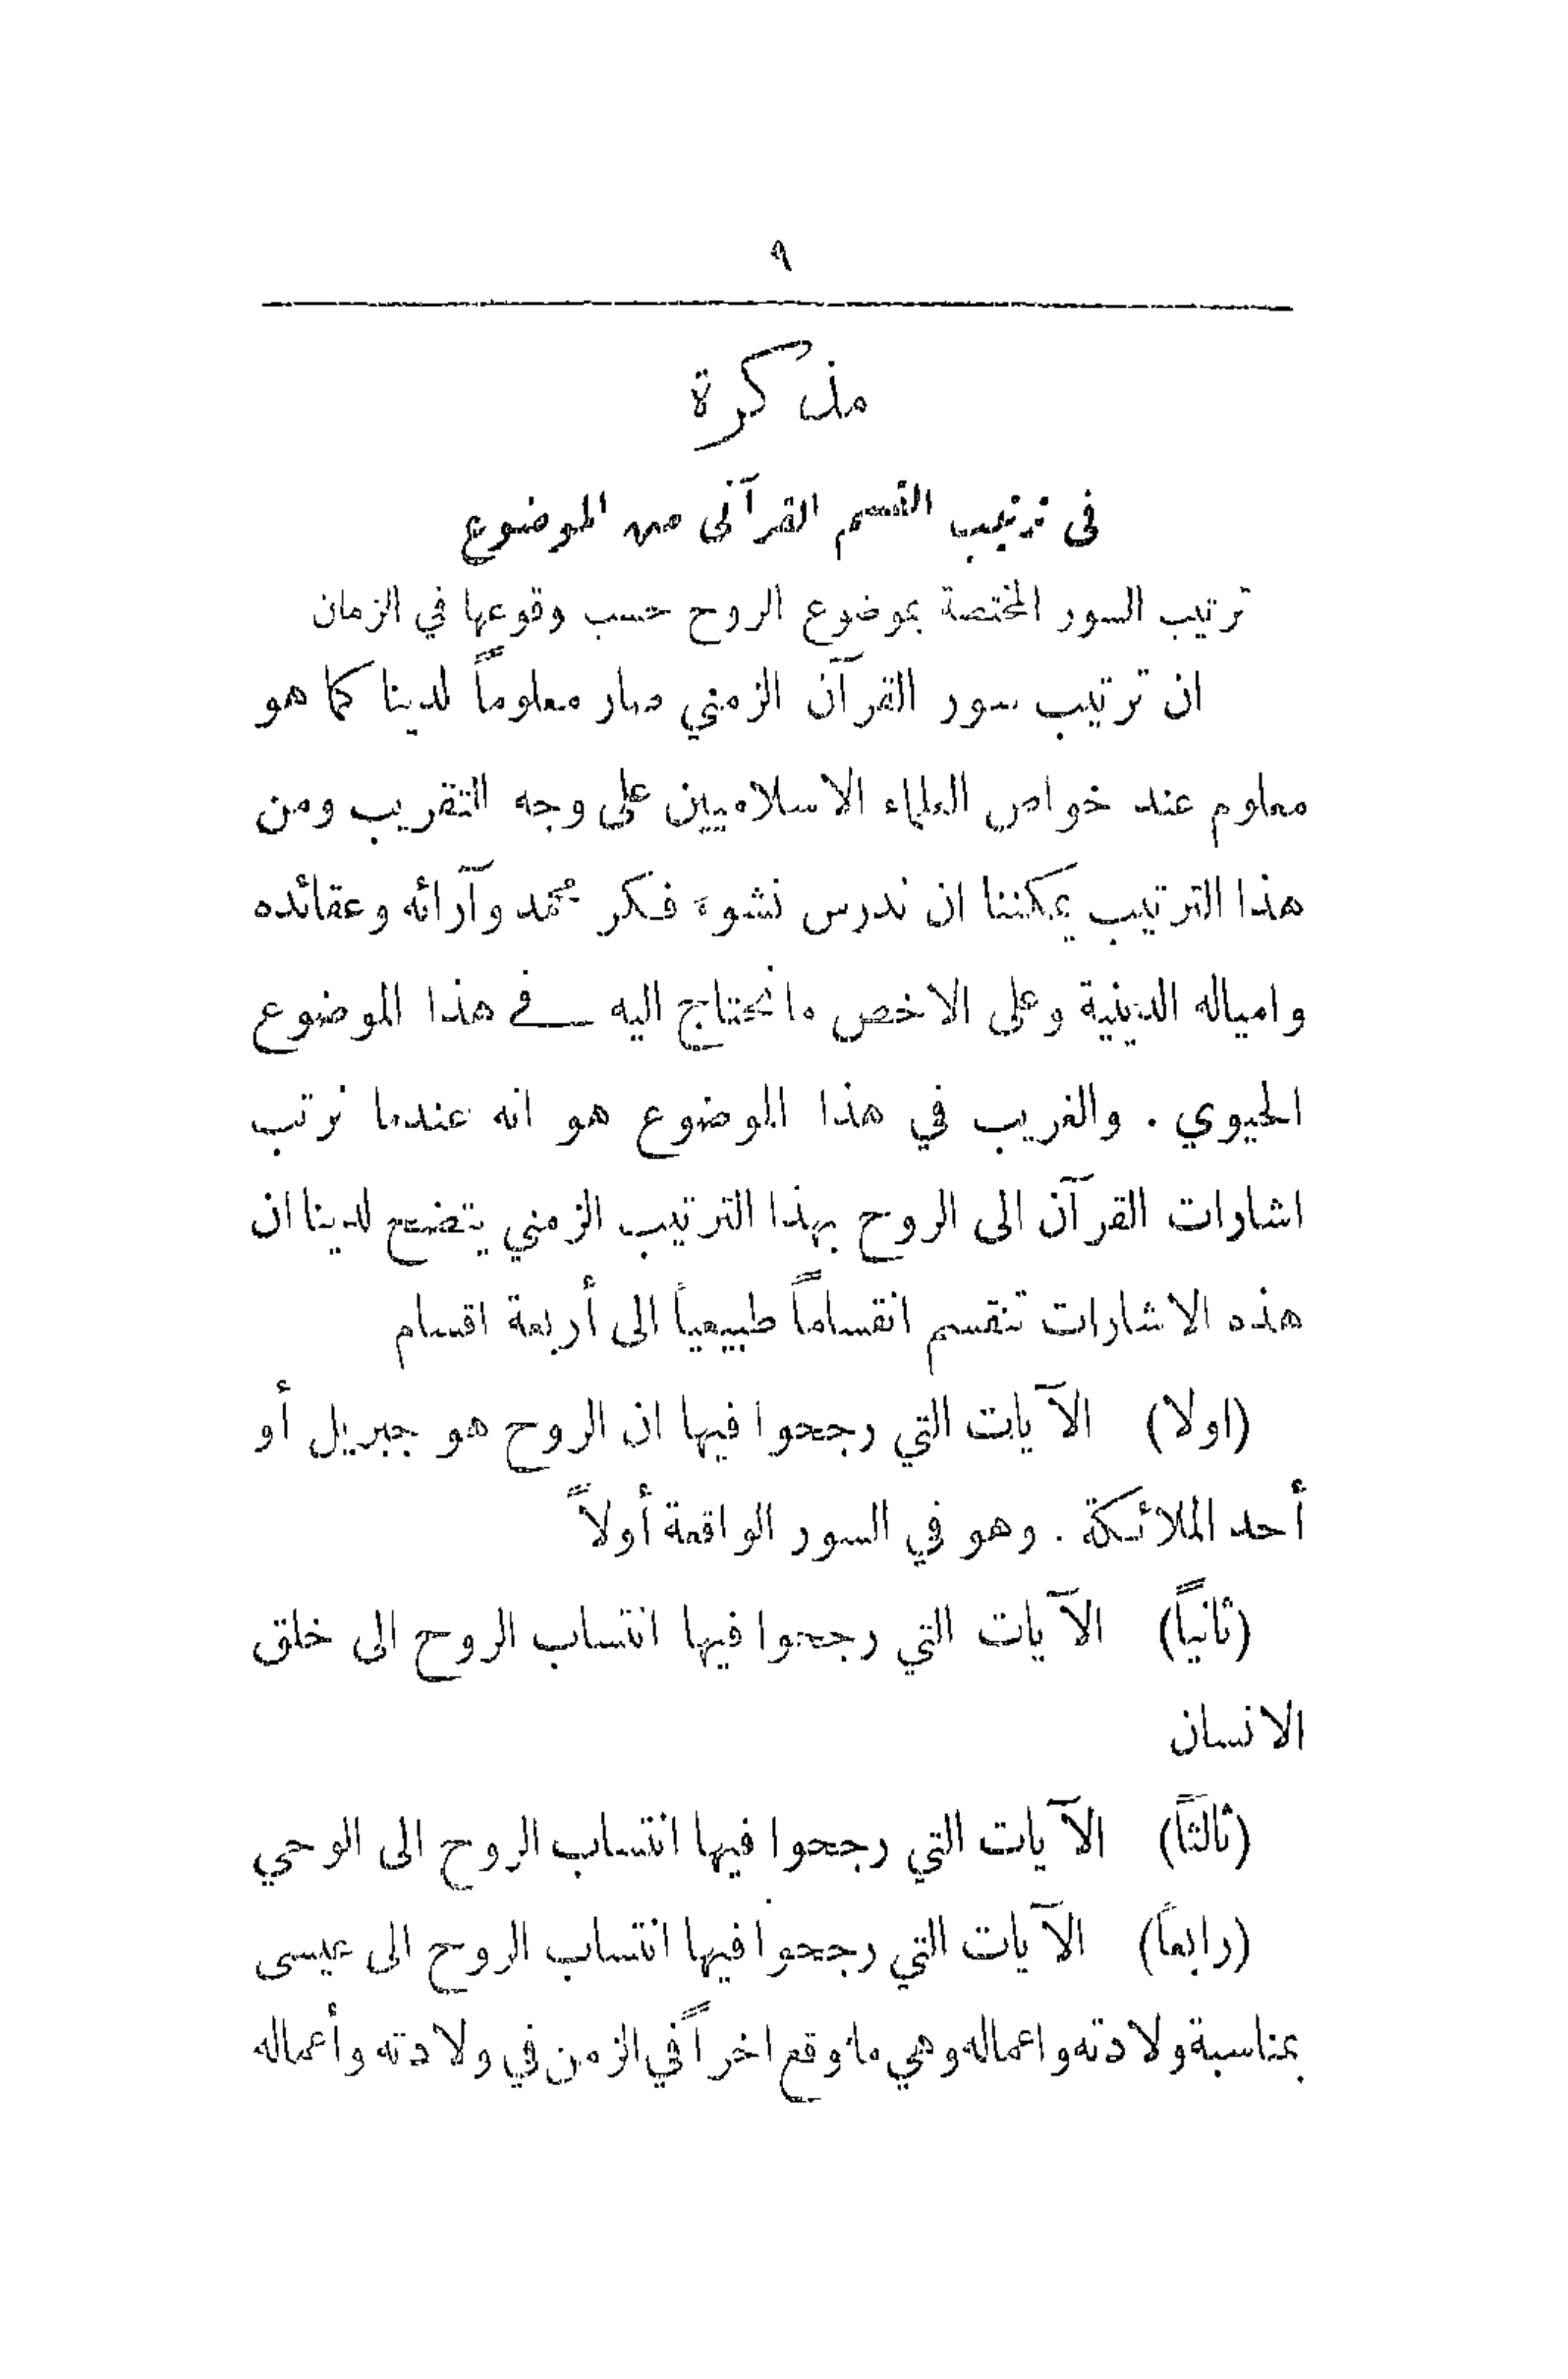 ٩
مذكرة
فى ترتيب القسم القرآنى من الموضوع
ترتيب السور المختصة بموضوع الروح حسب وقوعها في الزمان
ان ترتيب سور القرآن الزمني صار معلوماً لدينا كما هو
معلوم عند خواص العلماء الاسلاميين على وجه التقريب ومن
هذا الترتيب يمكننا ان ندرس نشوء فكر محمد وآرائه وعقائده
وامياله الدينية وعلى الاخص ما نحتاج اليه في هذا الموضوع
الحيوي . والغريب في هذا الموضوع هو انه عندما نرتب
اشارات القرآن الى الروح بهذا الترتيب الزمني يتضح لدينا ان
هذه الاشارات تنقسم انقساماً طبيعياً الى أربعة اقسام
(اولا) الآيات التي رجحوا فيها ان الروح هو جبريل أو
أحد الملائكة . وهو في السور الواقعة أولاً
(ثانياً) الآيات التي رجحوا فيها انتساب الروح الى خلق
الانسان
(ثالثاً) الآيات التي رجحوا فيها انتساب الروح الى الوحي
(رابعاً) الآيات التي رجحوا فيها انتساب الروح الى عيسى
بمناسبة ولادته واعماله وهي ما وقع اخراً في الزمن في ولادته وأعماله